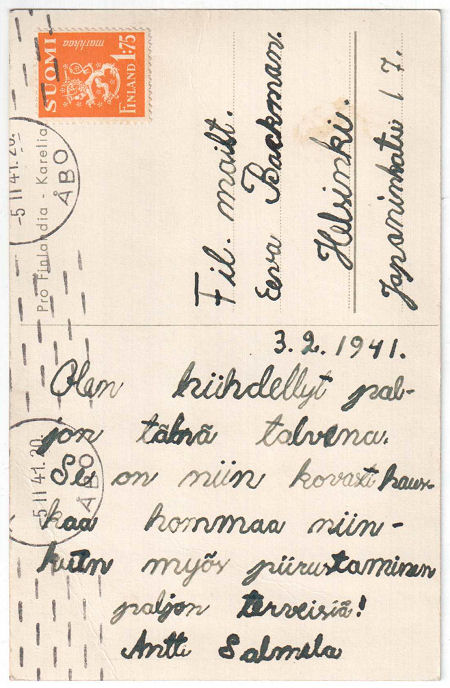 SUOMI
markkaa
1:75
FINLAND
Pro Finlandia - Karelia
-5 II 41. 20.
ÅBO
-5 II 41. 20.
ÅBO
Fil. maist.
Eeva Backman.
Helsinki.
Japaninkatu 17.
3.2.1941.
Olen hiihdellyt pal-
jon tänä talvena.
Se on niin kovasti haus-
kaa hommaa niin-
kuin myös piirustaminen
paljon terveisiä!
Antti Salmela